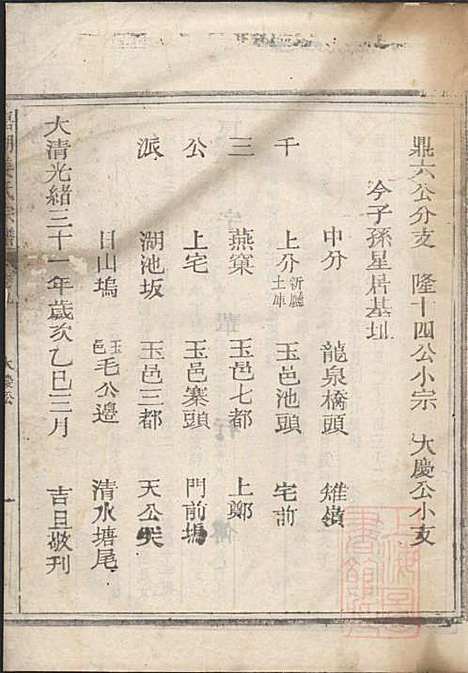 鼎六公分支　隆十四公小宗　大慶公小支
今子孫星居基址
中分　龍泉橋頭　雉嶺
千　上分新廳土庫　玉邑池頭　宅前
三　燕窠　玉邑七都　上鄭
公　上宅　玉邑寨頭　門前塢
派　湖池坂　玉邑三都　天公尖
目山塢　玉邑毛公邊　清水塘尾
大清光緒三十一年歲次乙巳三月　吉旦敬刊